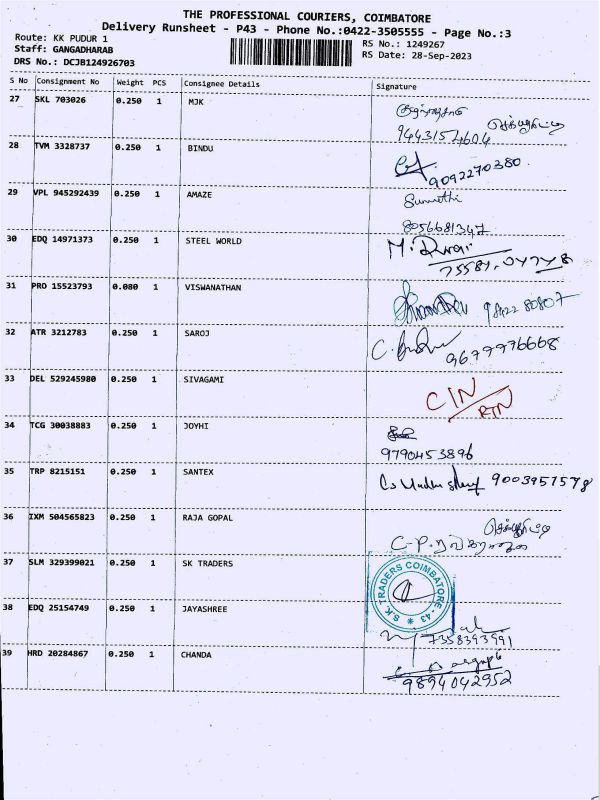 THE PROFESSIONAL COURIERS, COIMBATORE
Delivery Runsheet - P43 - Phone No.:0422-3505555 - Page No.:3
Route: KK PUDUR 1
RS No.: 1249267
Staff: GANGADHARAB
RS Date: 28-Sep-2023
DRS No.: DCJB124926703
S No Consignment No Weight PCS Consignee Details Signature
27 SKL 703026 0.250 1 MJK
28 TVM 3328737 0.250 1 BINDU
9092270380
29 VPL 945292439 0.250 1 AMAZE Sumathi
8056681347
30 EDQ 14971373 0.250 1 STEEL WORLD
31 PRO 15523793 0.080 1 VISWANATHAN
32 ATR 3212783 0.250 1 SAROJ
9677976668
33 DEL 529245980 0.250 1 SIVAGAMI CIN
RTN
34 TCG 30038883 0.250 1 JOYHI
9790453896
35 TRP 8215151 0.250 1 SANTEX 9003957578
36 IXM 504565823 0.250 1 RAJA GOPAL
37 SLM 329399021 0.250 1 SK TRADERS
S.K. TRADERS COIMBATORE - 43
38 EDQ 25154749 0.250 1 JAYASHREE
7358393991
39 HRD 20284867 0.250 1 CHANDA
9894042952